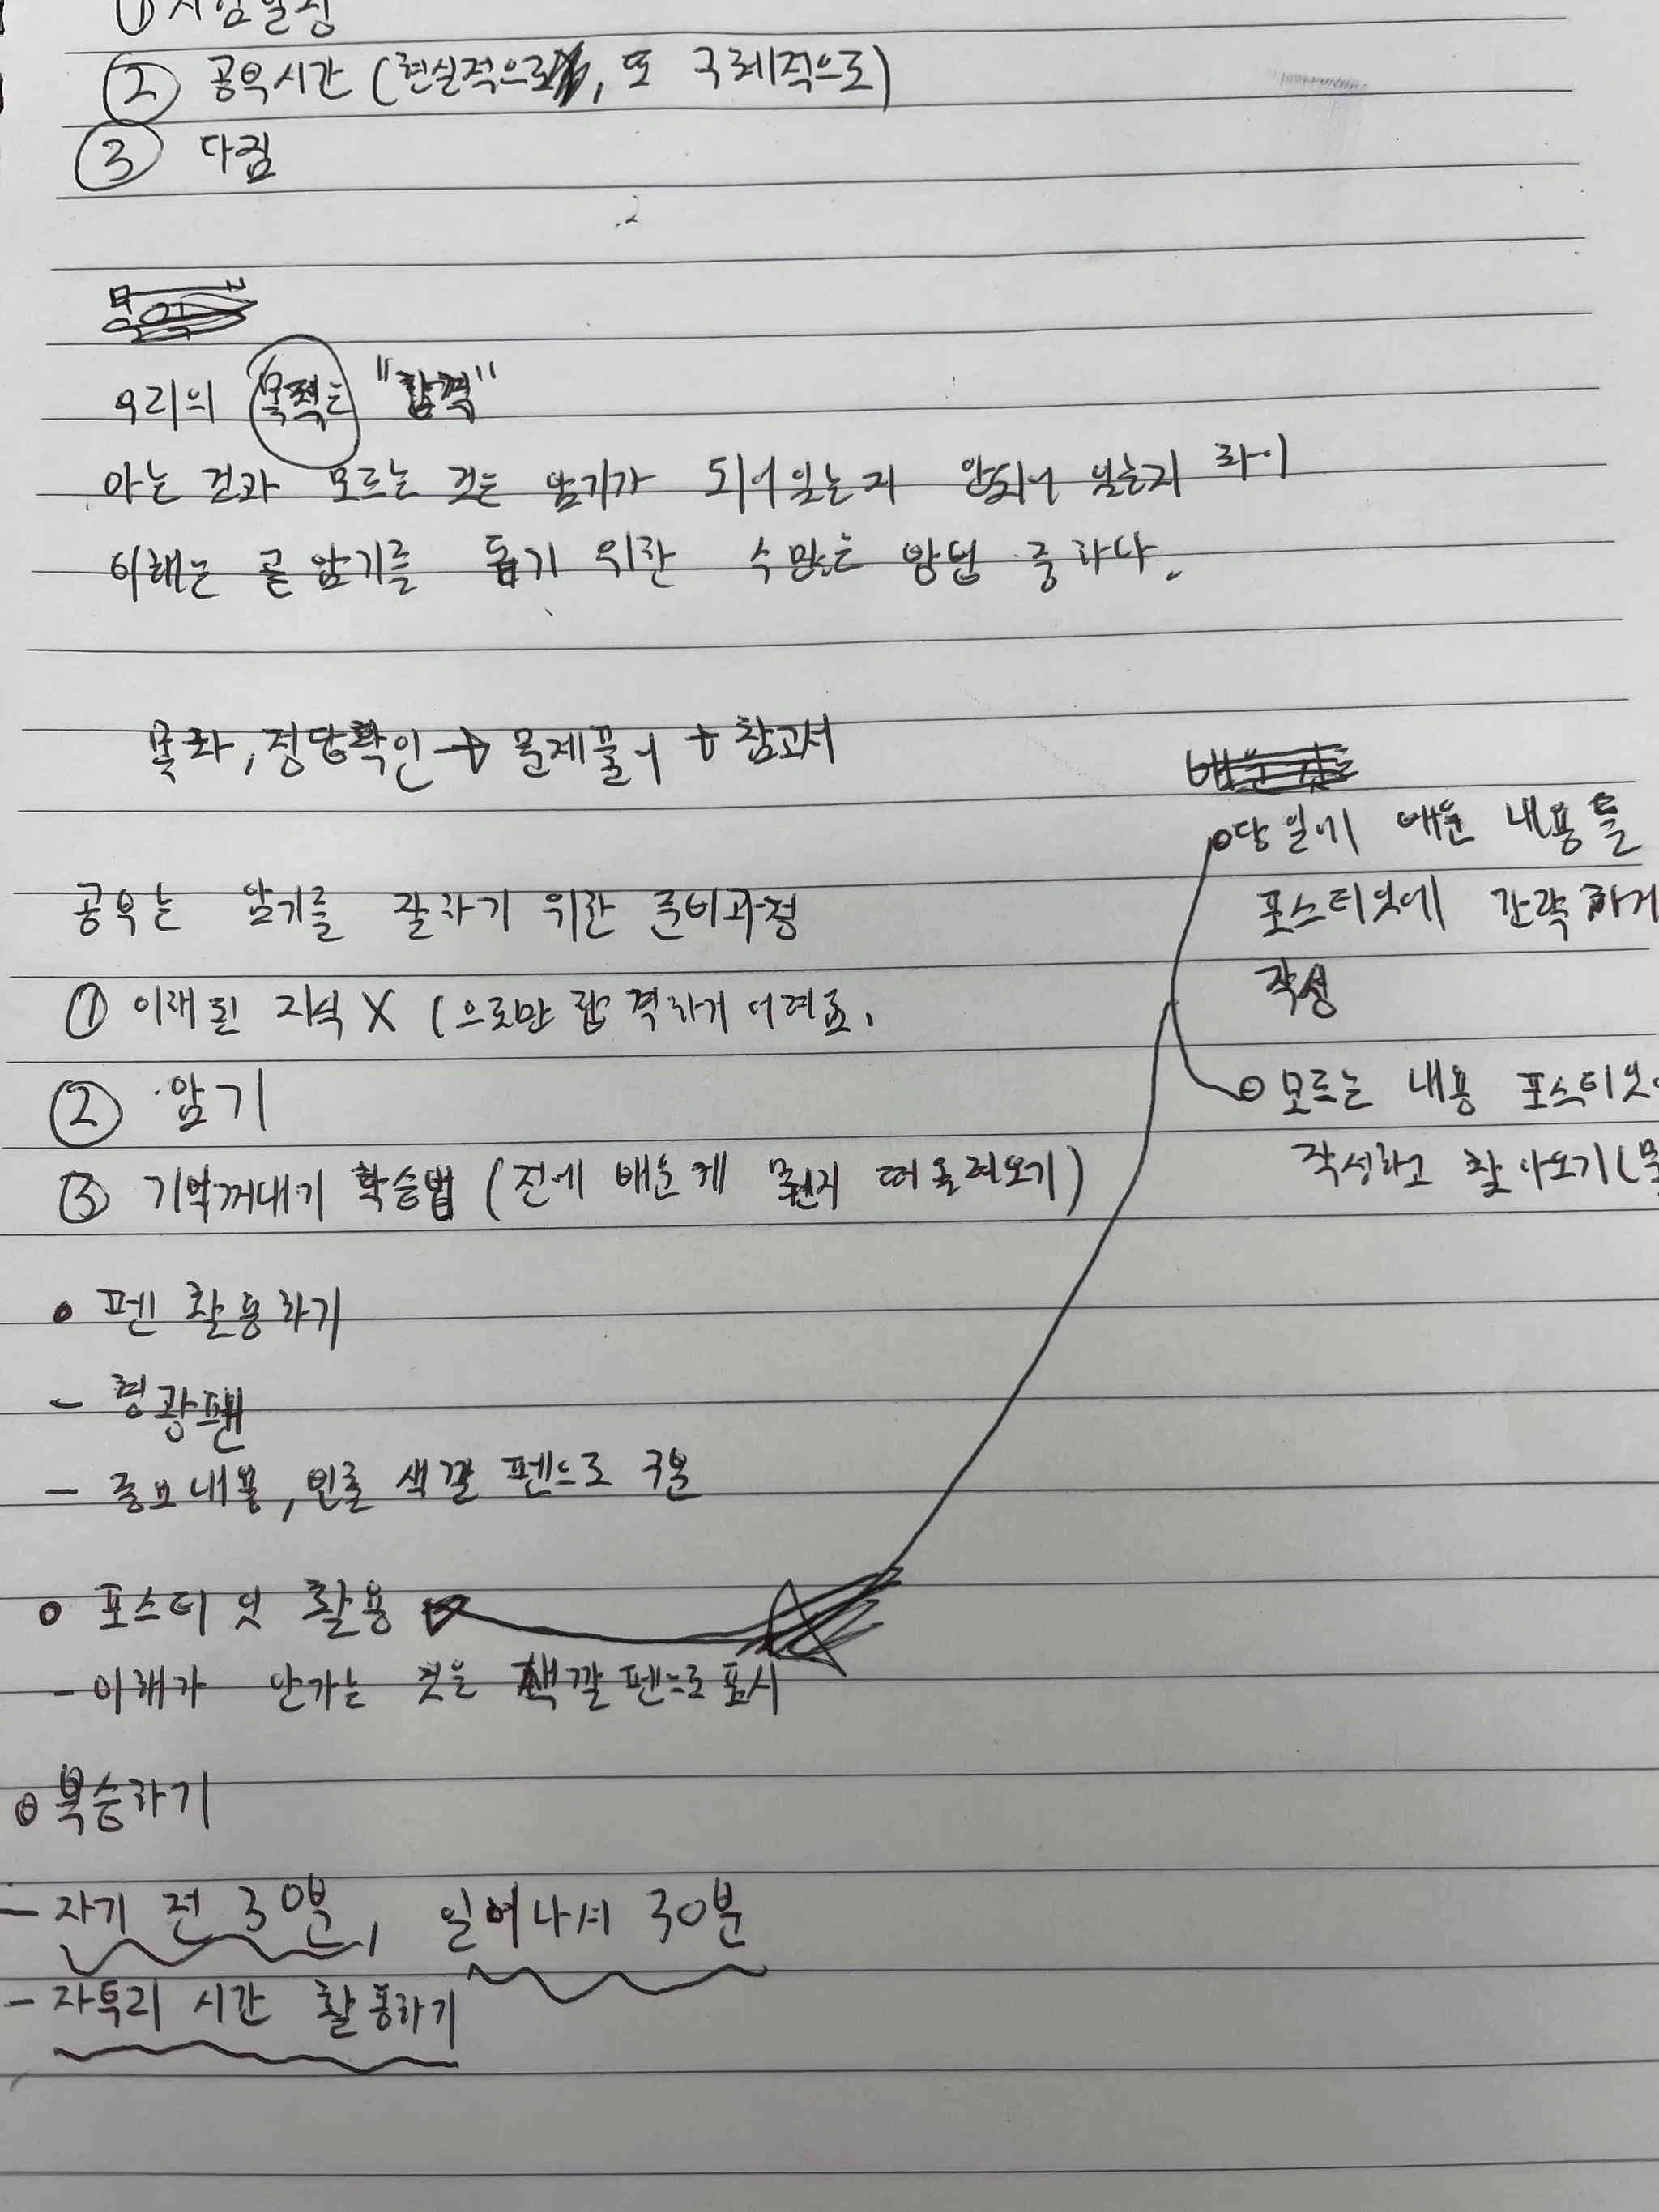 ① 시험일정
② 공부시간 (현실적으로, 또 구체적으로)
③ 다짐
우리의 목적은 "합격"
아는 것과 모르는 것은 암기가 되어있는지 안되어 있는지 차이
이해는 곧 암기를 돕기 위한 수많은 방법 중 하나.
목차, 정답확인 → 문제풀이 + 참고서
공부는 암기를 잘하기 위한 준비과정
① 이해된 지식 X (으로만 합격하기 어려죠.
② 암기
③ 기억꺼내기 학습법 (전에 배운게 뭔지 떠올려오기)
• 펜 활용하기
- 형광펜
- 중요내용, 인출 색깔 펜으로 구분
○ 포스티잇 활용
- 이해가 안가는 것을 색깔펜으로 표시
○ 복습하기
- 자기 전 30분, 일어나서 30분
- 자투리 시간 활용하기
○ 당일에 배운 내용들
포스티잇에 간략하게
작성
○ 모르는 내용 포스티잇
작성하고 찾아오기 (